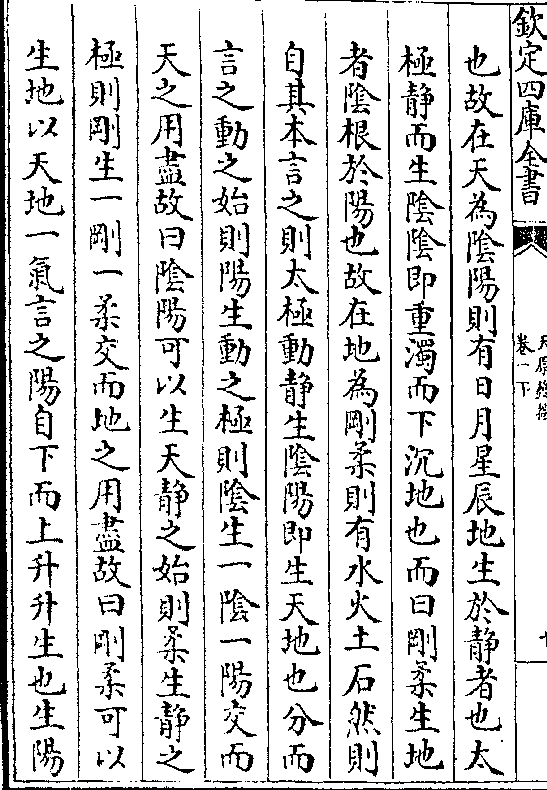 欽定四庫全書
卷一下
也故在天為陰陽則有日月星辰地生於静者也太
極静而生陰陰即重濁而下沉地也而曰剛柔生地
者陰根於陽也故在地為剛柔則有水火土石然則
自其本言之則太極動静生陰陽即生天地也分而
言之動之始則陽生動之極則陰生一陰一陽交而
天之用盡故曰陰陽可以生天静之始則柔生静之
極則剛生一剛一柔交而地之用盡故曰剛柔可以
生地以天地一氣言之陽自下而上升升生也生陽